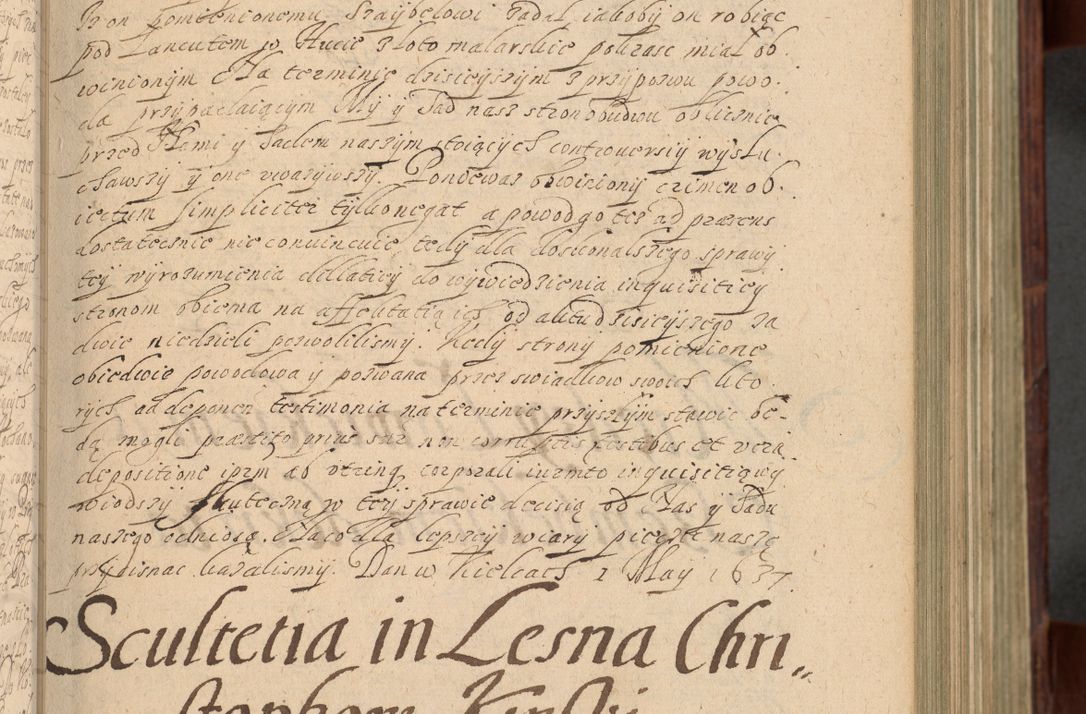 Iz on pomienionemu Szaybelowi zadał iakoby on robiąc
pod Łancutem w Hucie złoto malarskie pokrasc miał ob-
winionym Na terminie dzisieyszym z przypozwu powo-
da przypadaiącym My y Sąd nasz stron obudwu oblicznie
przed Nami y Sądem naszym stoiących controuersiy wysłu-
chawszy y one vwazywszy. Poniewaz obwiniony crimen ob-
iectum simpliciter tylko negat a powod go tez ad præsens
dostatecznie nie conuincuie tedy dla doskonalszego sprawy
tey wyrozumienia dillatiey do wywiedzienia inquisitiey
stronom obiema na affectatią ich od aktu dzisieyszego za
dwie niedzieli pozwolilismy. Kiedy strony pomienione
obiedwie powodowa y pozwana przez swiadkow swoich kto-
rych ad deponen testimonia na terminie przyszłym stawic bę-
dą mogli præstito prius sur non corruptis testibus et vera
depositione iprm ab vtrinq corporali iurmto inquisitiowy
wiodszy skuteczną w tey sprawie decisią od Nas y Sądu
naszego odniosą. Na co dla lepszey wiary pieczęc naszę
przycisnąc kazalismy. Dan w Kielcach 1 Maij 1637.
Scultetia in Lesna Chri„
stophoro Kinski